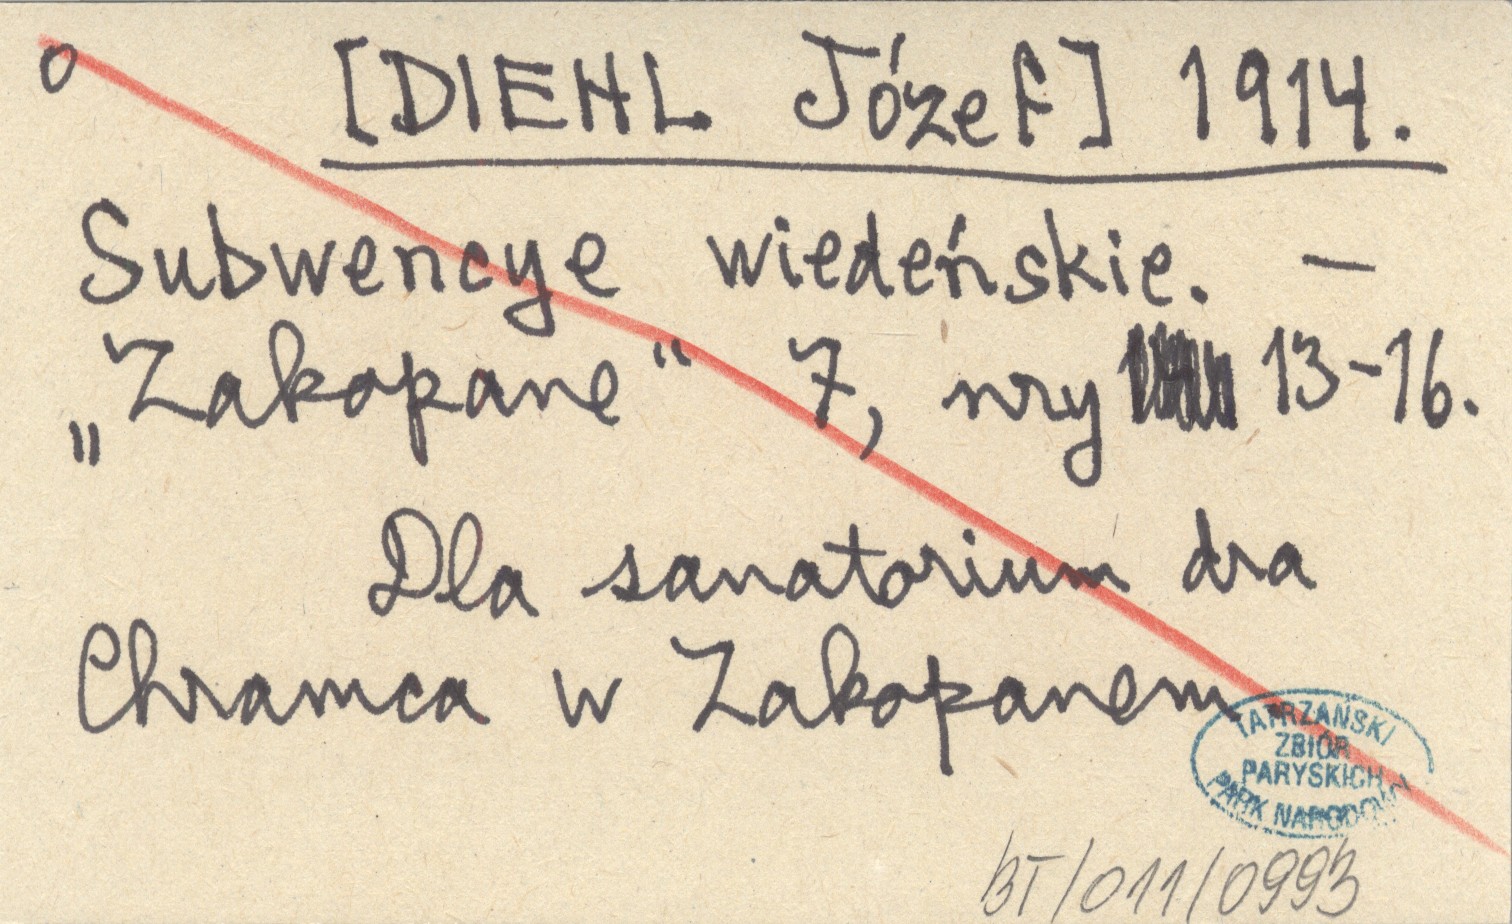 o [DIEHL Józef] 1914.
Subwencye wiedeńskie. —
„Zakopane“ 7, nry 13-16.
Dla sanatorium dra
Chramca w Zakopanem
TATRZAŃSKI
ZBIÓR
PARYSKICH
PARK NARODOWY
BT/011/0993